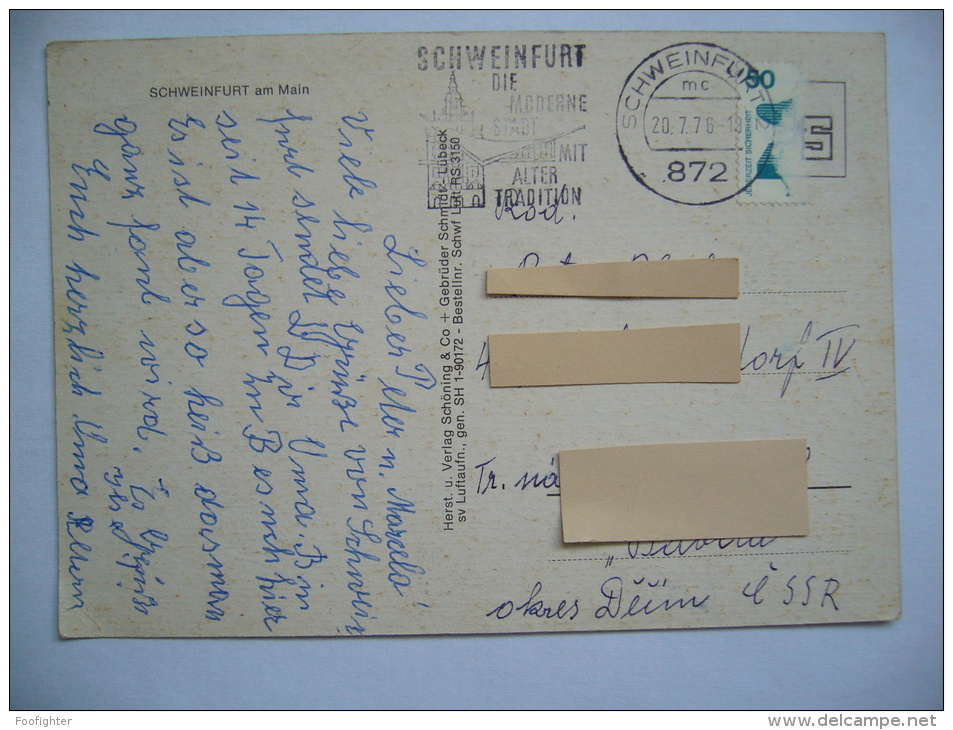 SCHWEINFURT am Main
SCHWEINFURT
DIE
MODERNE
STADT
MIT
ALTER
TRADITION
SCHWEINFURT 2
mc
20.7.76-19
872
50
JEDERZEIT SICHERHEIT
Lieber Peter u. Marcela!
Viele liebe Grüsse von Schwein
furt sendet Dir Oma. Bin
seit 14 Tagen zu Besuch hier
Es ist aber so heiß das man
ganz wird. Es
Euch herzlich Oma
Herst. u. Verlag Schöning & Co + Gebrüder Schmidt - Lübeck
sv Luftaufn., gen. SH 1-90172 - Bestellnr. Schwf Luft RS 3150
Rod.
4 dorf IV
Tr. ná
okres Děčín ČSSR
Foofighter
www.delcampe.net